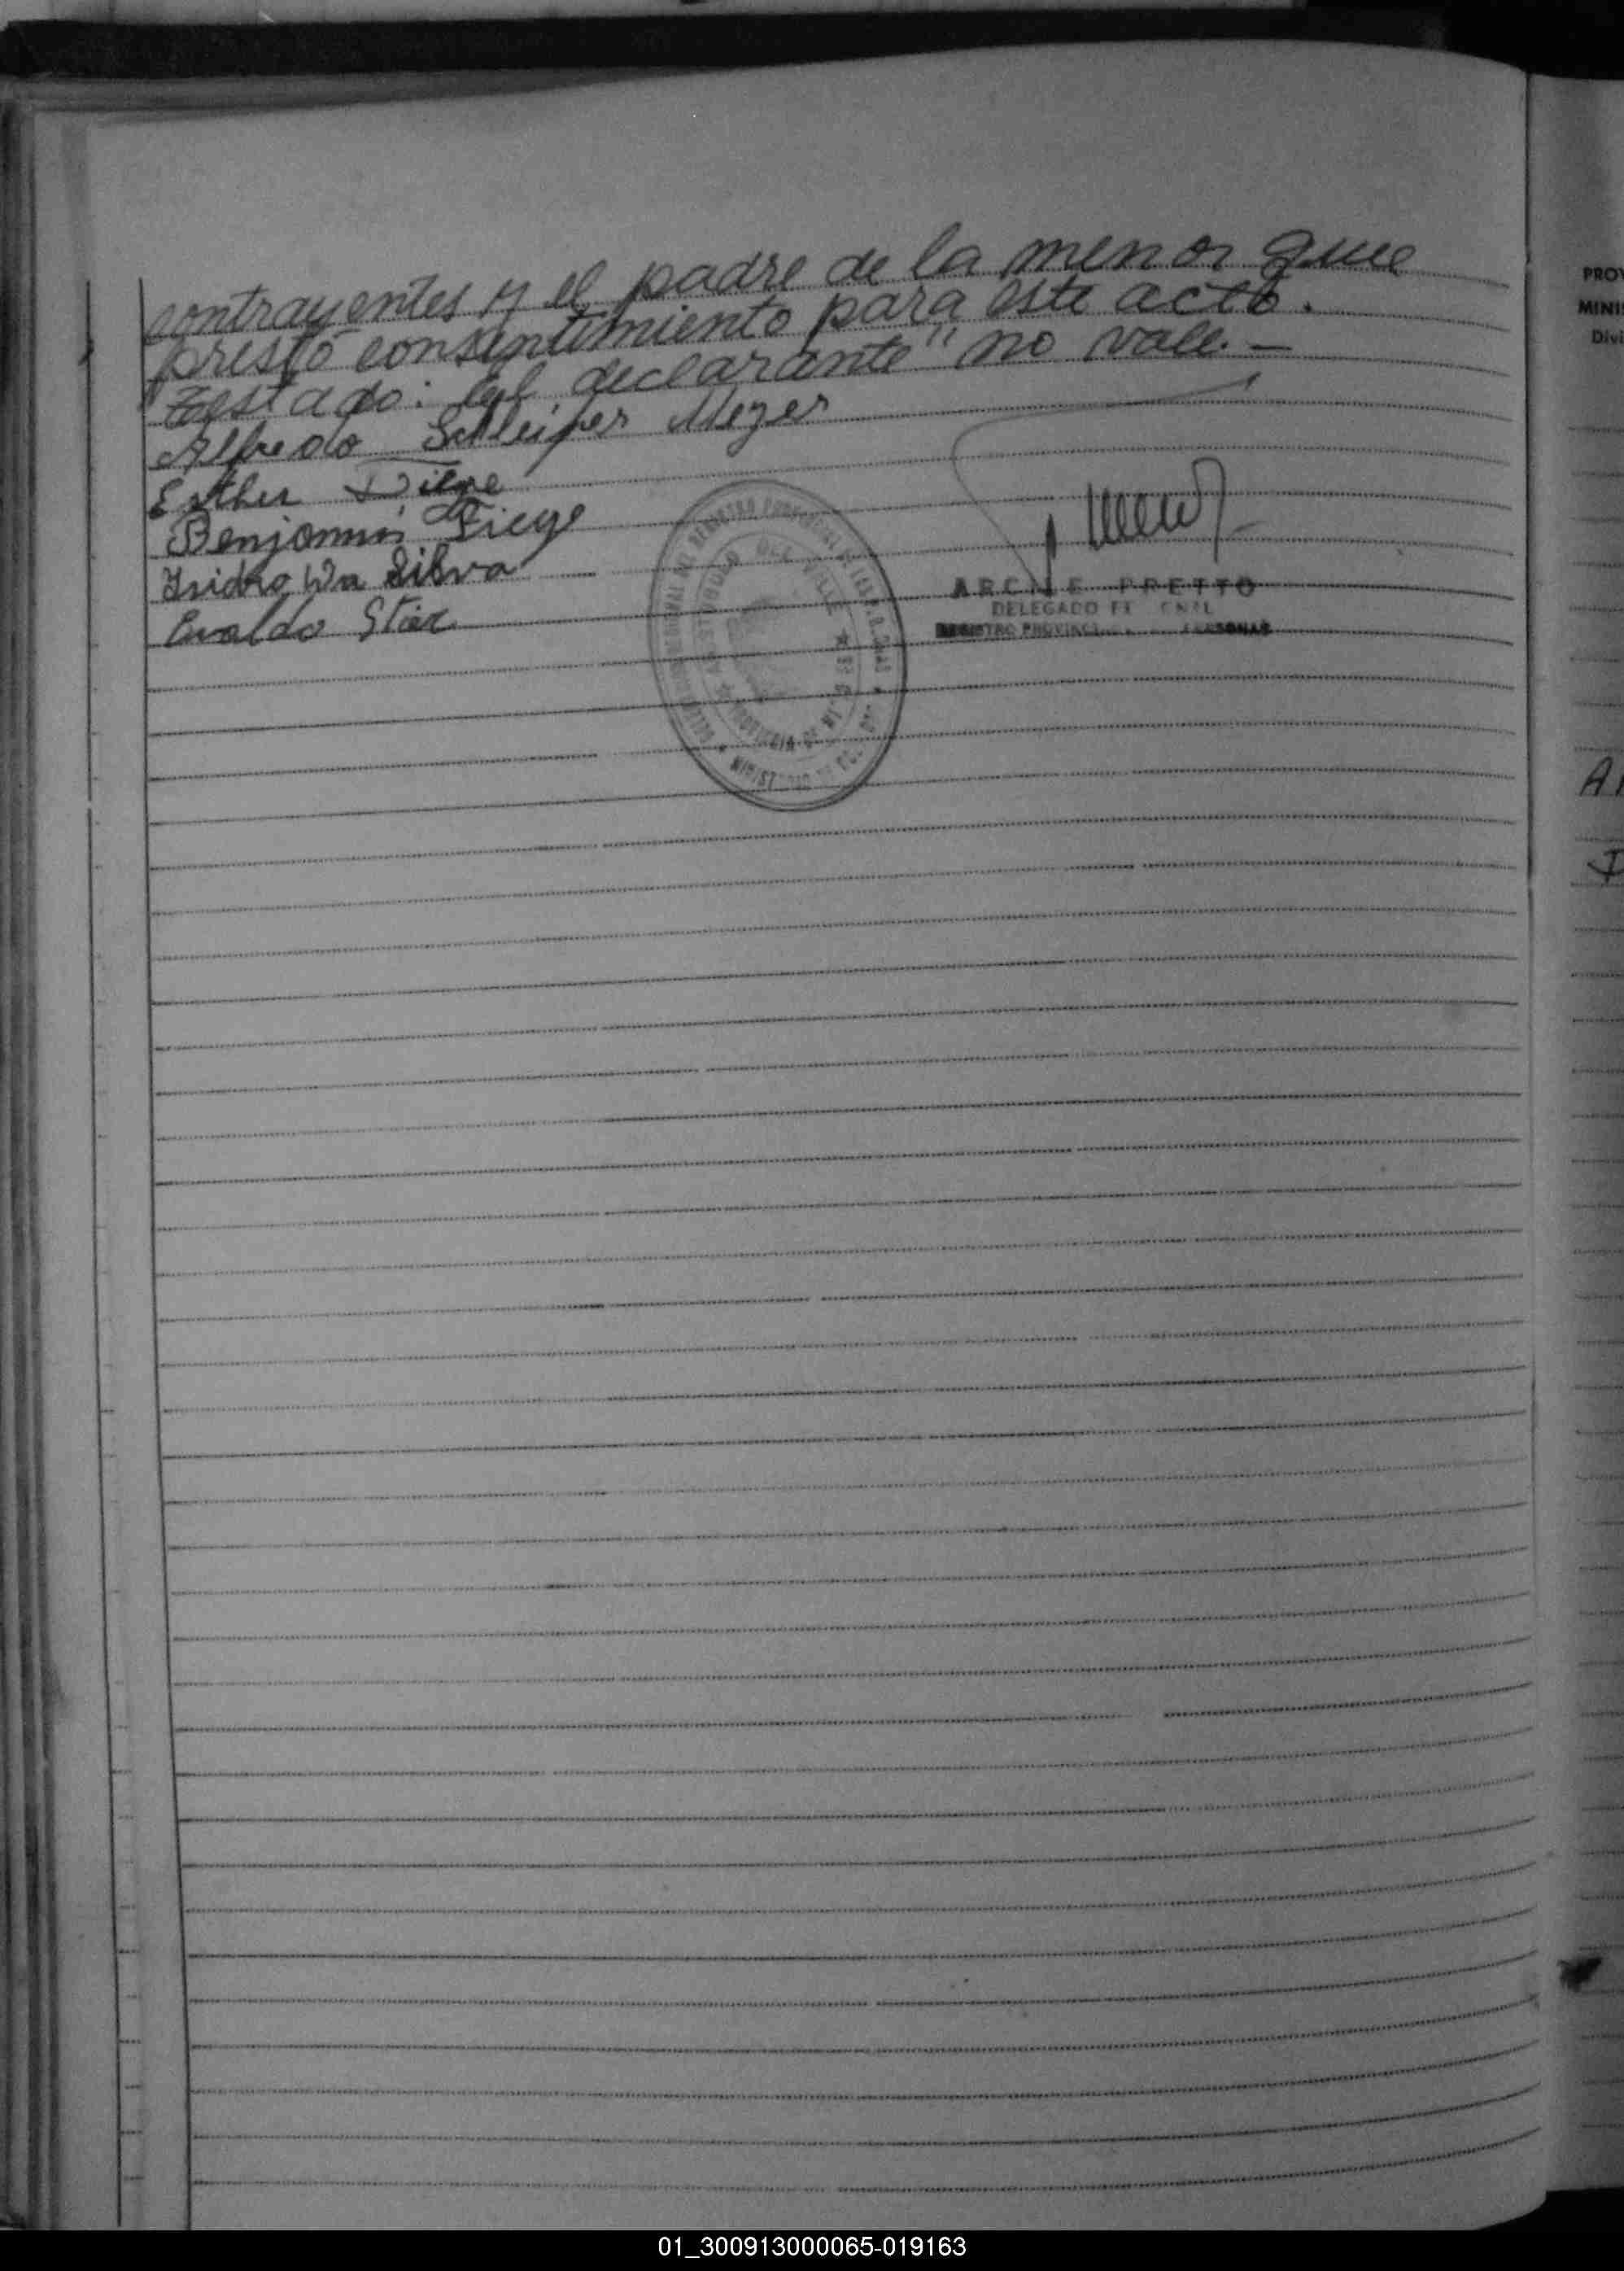 contrayentes y el padre de la menor que
prestó consentimiento para este acto.
Testado: "el declarante" no vale.—
Alfredo Schleifer Mezer
Esther Fiege
Benjamin Fiege
Isidro Da Silva
Evaldo Stier
ARCH E PRETTO
DELEGADO
REGISTRO PROVINCIAL PERSONAS
DEL VALLE
PROVINCIA DE
PROV
MINIS
Divi
A
01_300913000065-019163